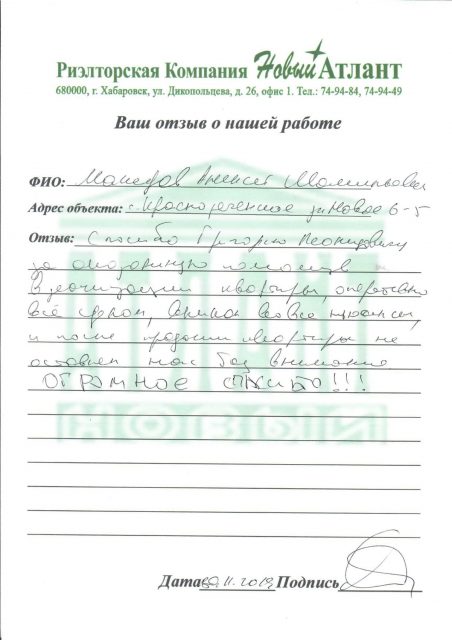 Риэлторская Компания Новый Атлант
680000, г. Хабаровск, ул. Дикопольцева, д. 26, офис 1. Тел.: 74-94-84, 74-94-49
Ваш отзыв о нашей работе
ФИО: Алексей
Адрес объекта: с. Краснореченское ул. Новая 6-5
Отзыв: Спасибо Григорию Леонидовичу
за оказанную помощь
В реализации квартиры, оперативно
всё сделал, вник во все нюансы,
и после продажи квартиры не
оставил нас без внимания
ОГРОМНОЕ СПАСИБО!!!
НОВЫЙ
Дата 11.2019 Подпись